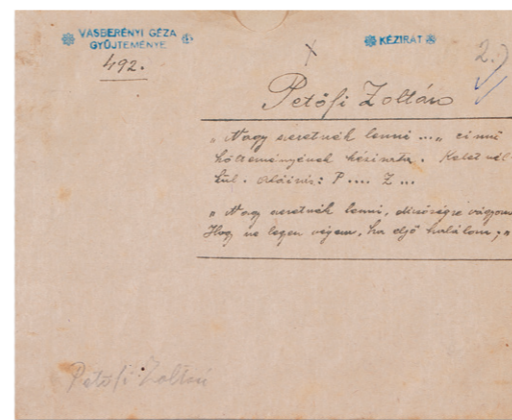 VASBERÉNYI GÉZA
GYŰJTEMÉNYE
492.
KÉZIRAT
2.)
Petőfi Zoltán
„Nagy szeretnék lenni ...„ című
költeményének kézirata. Kelet nél-
kül. Aláírás: P.... Z...
„Nagy szeretnék lenni, dicsőségre vágyom
Hogy ne legyen végem, ha eljő halálom;"
Petőfi Zoltán